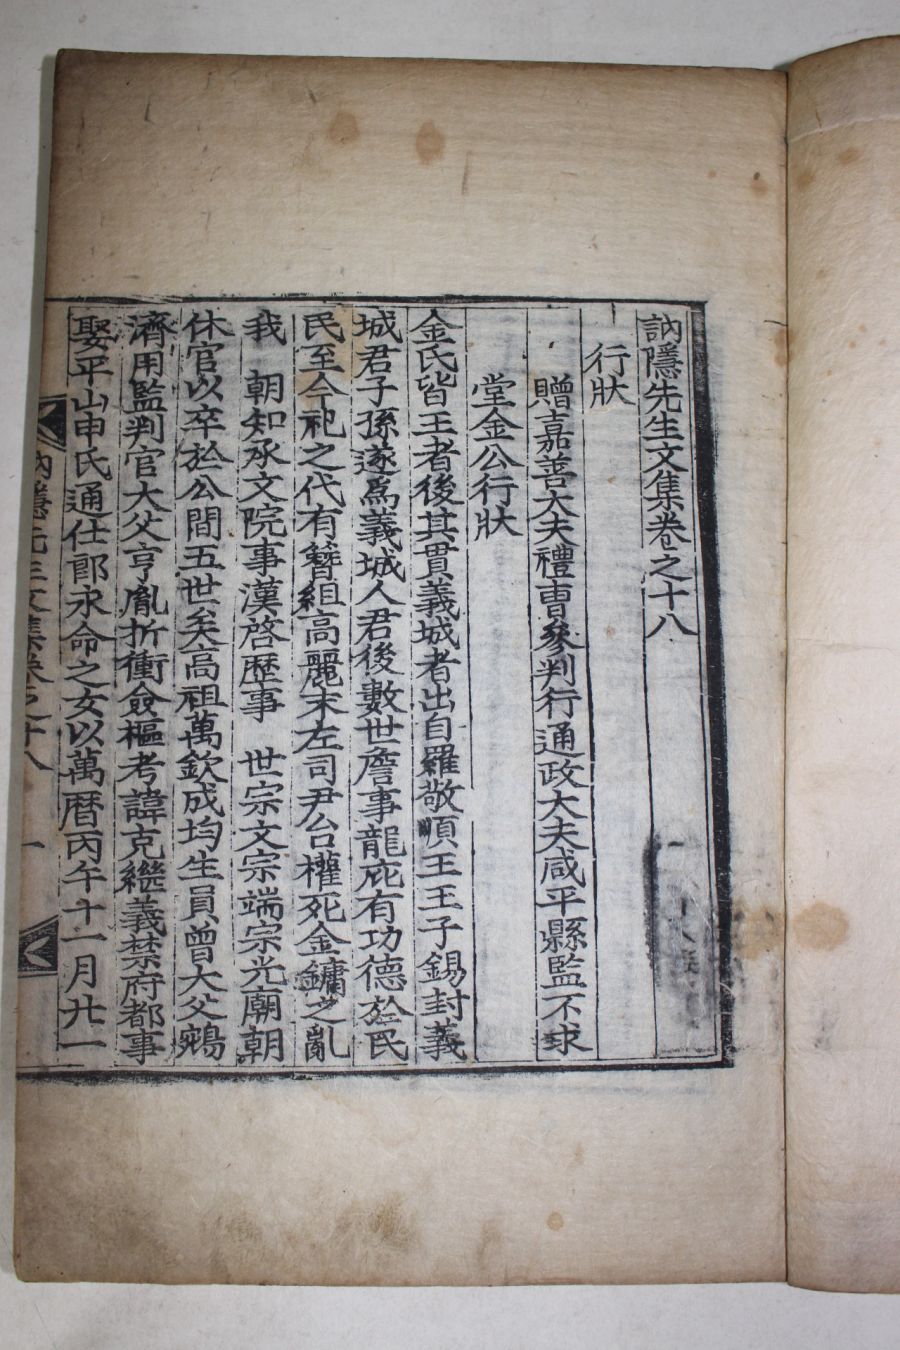 訥隱先生文集卷之十八
行狀
贈嘉善大夫禮曹參判行通政大夫咸平縣監不求
堂金公行狀
金氏皆王者後其貫義城者出自羅敬順王王子錫封義
城君子孫遂爲義城人君後數世詹事龍庇有功德於民
民至今祀之代有簪組高麗末左司尹台權死金鏞之亂
我　朝知承文院事漢啓歷事　世宗文宗端宗光廟朝
休官以卒於公間五世矣高祖萬欽成均生員曾大父鵷
濟用監判官大父亨胤折衝僉樞考諱克繼義禁府都事
娶平山申氏通仕郎永命之女以萬曆丙午十一月廿一
訥隱先生文集卷之十八　一